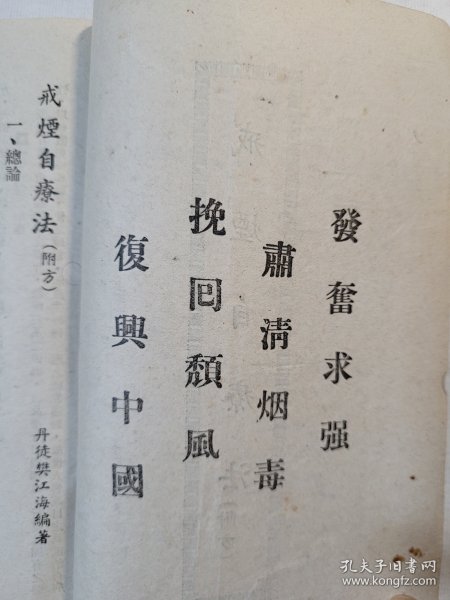 發奮求强
肅清烟毒
挽囘頹風
復興中國
戒煙自療法（附方）
一、總論
丹徒樊江海編著
孔夫子旧书网
www.kongfz.com